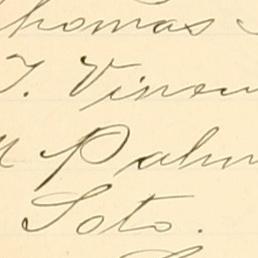 Thomas
T. Vincen
Palm
Soto.